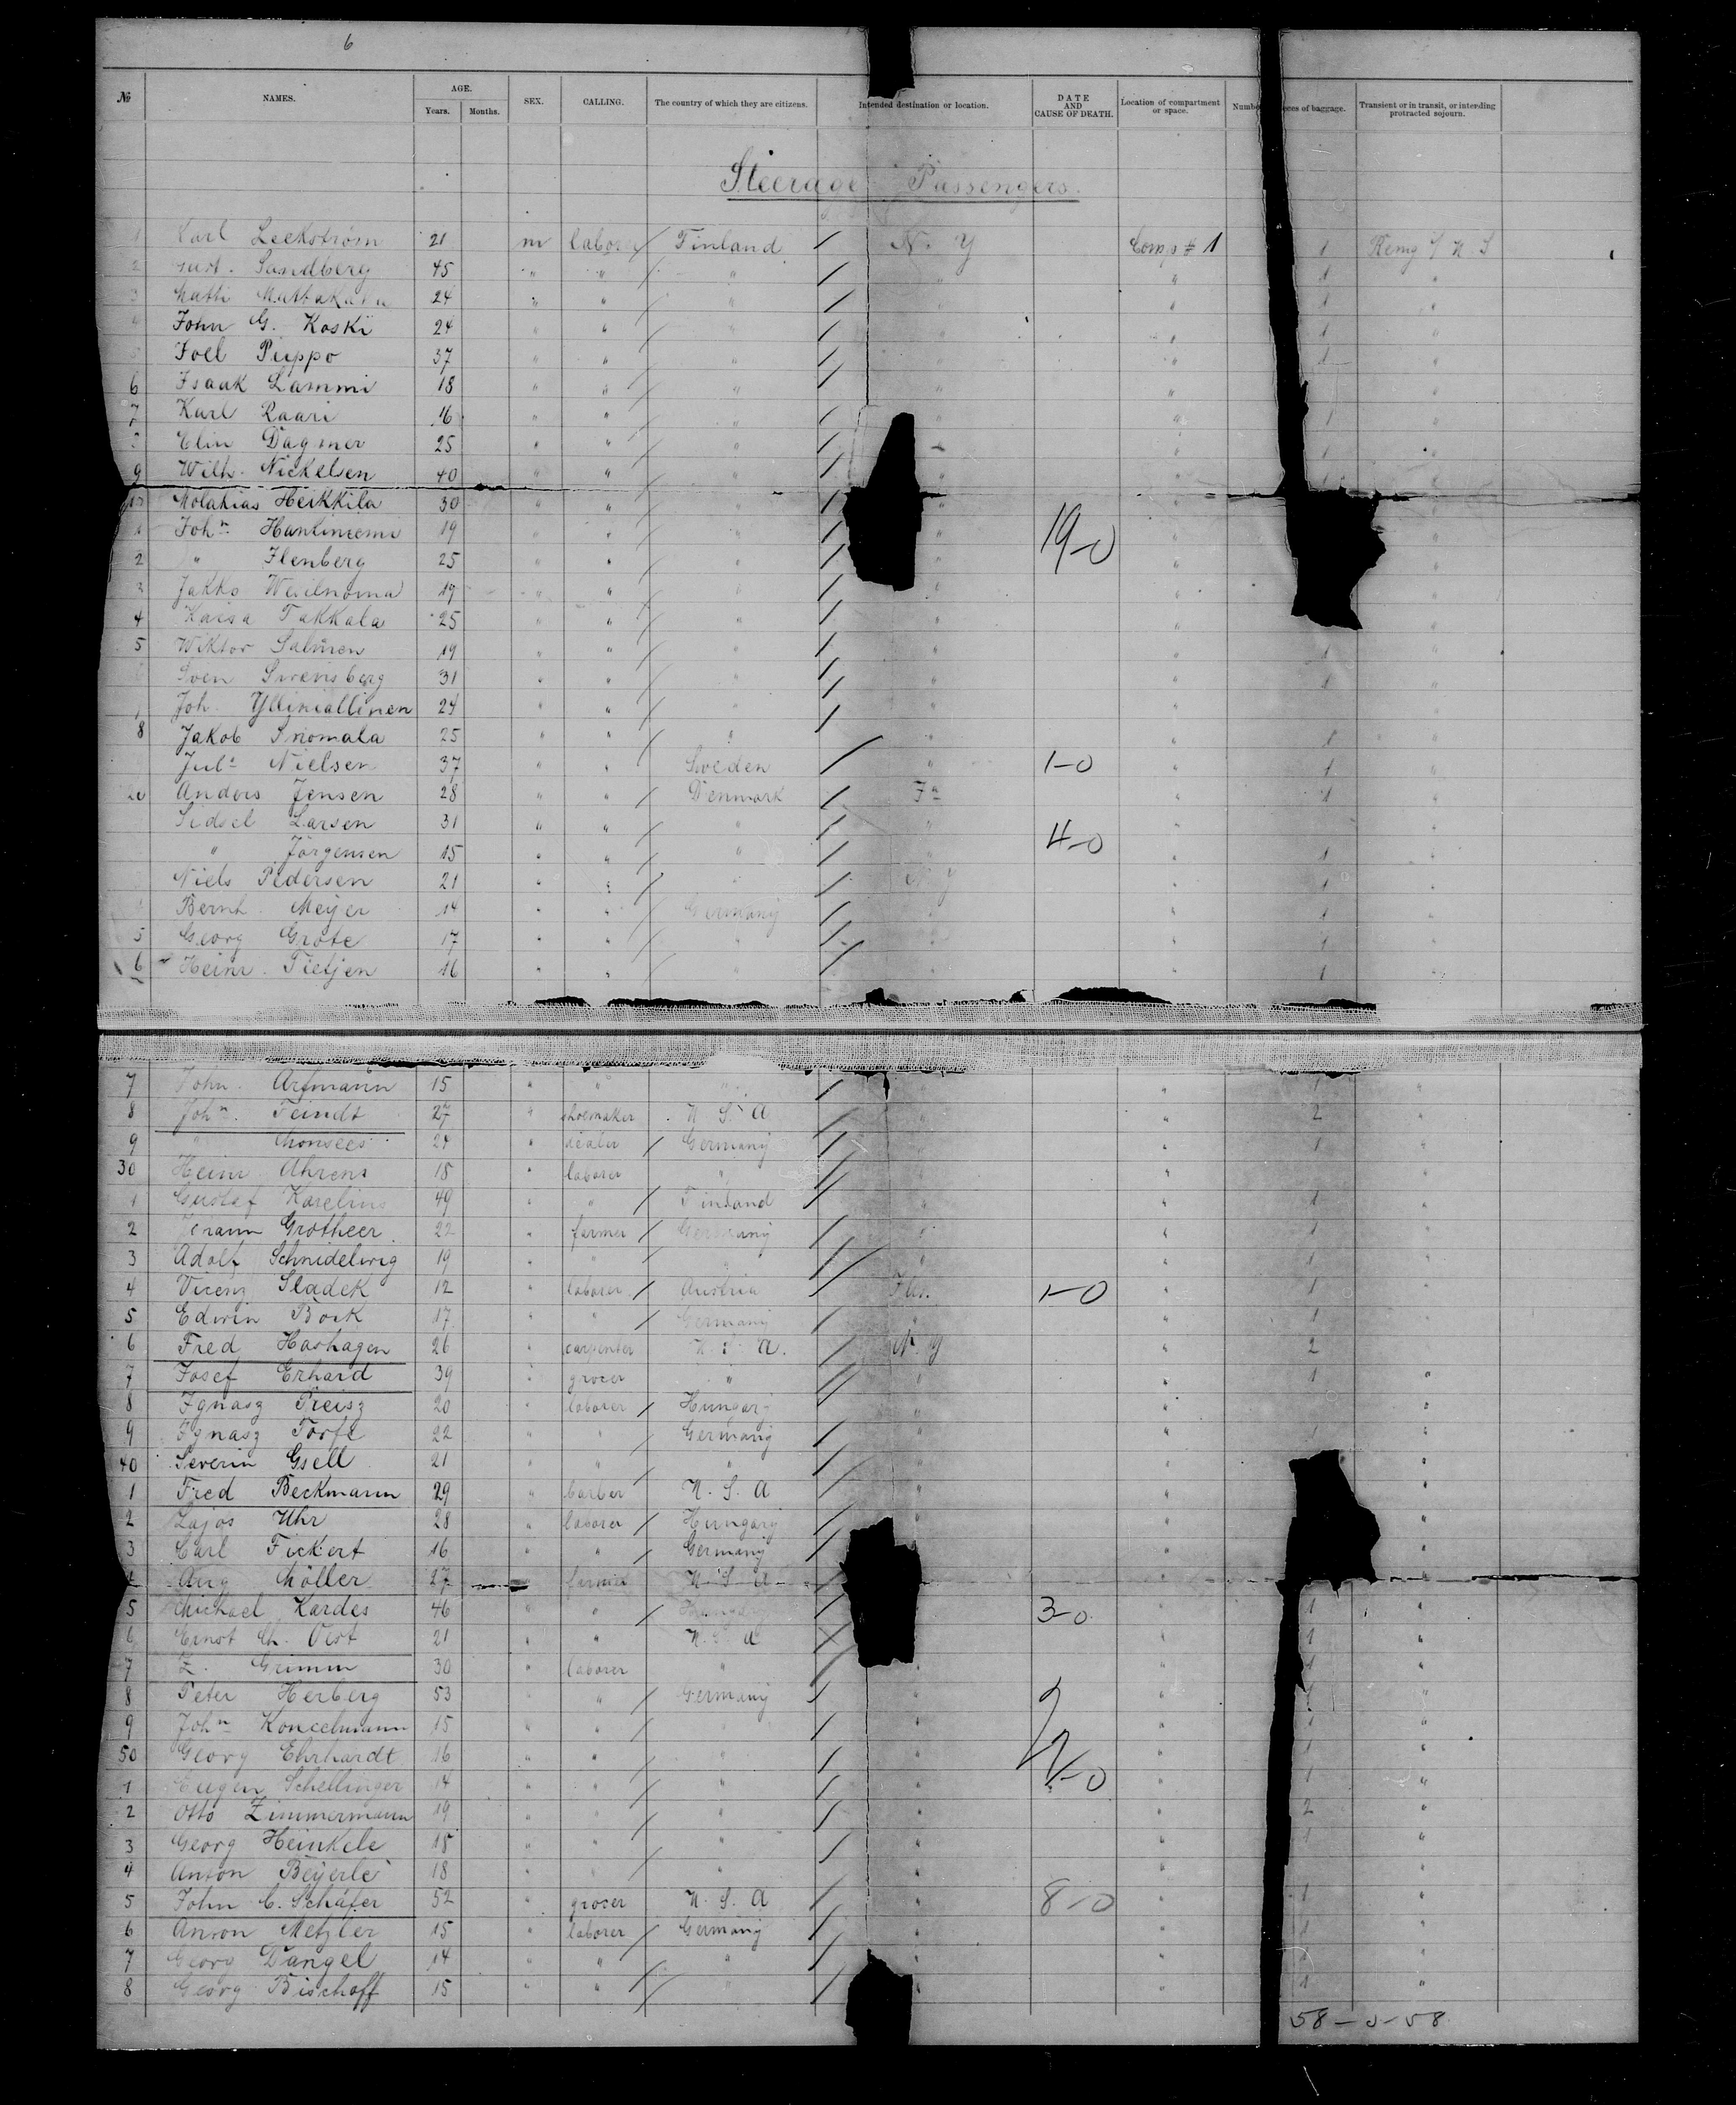 6
№ NAMES. AGE. Years. Months. SEX. CALLING. The country of which they are citizens. Intended destination or location. DATE AND CAUSE OF DEATH. Location of compartment or space. Numbe ces of baggage. Transient or in transit, or intending protracted sojourn.
Steerage Passengers.
Karl Leckström 21 m labor Finland N. Y Comp # 1 1
2 Gust. Sandberg 45 " " " " " 1 "
3 Matti 24 " " " " " 1 "
John G. Koski 24 " " " " " 1 "
Joel Puppo 37 " " " " " 1 "
6 Isaak Lammi 18 " " " " " "
7 Karl Raari 16 " " " " " 1 "
Elin Dagmer 25 " " " " " 1 "
9 Wilh. Nickelsen 40 " " " " " 1 "
Molakias Heikkila 30 " " " " "
1 Joh<sup>n</sup> Hanliniemi 19 " " " " 19-0 " "
2 " Ilenberg 25 " " " " " "
3 Jakko 19 " " " " " "
4 Kaisa Takkala 25 " " " " " "
5 Wiktor Salmen 19 " " " " " 1 "
Sven Swensberg 31 " " " " " 1 "
Joh. Ylliniallinen 24 " " " " " "
8 Jakob 25 " " " " " 1 "
Jul<sup>s</sup> Nielsen 37 " " Sweden " 1-0 " 1 "
20 Anders Jensen 28 " " Denmark " 1 "
Sidsel Larsen 31 " " " " " "
" Jörgensen 15 " " " " 4-0 " 1 "
Niels Pedersen 21 " " " N Y " 1 "
Bernh. Meyer 14 " " Germany " 1 "
5 Georg Grote 17 " " " " 1 "
6 Heinr. Tietjen 16 " " " " 1 "
7 John. Arfmann 15 " " " " "
8 Joh<sup>n</sup>. Feindt 27 " shoemaker U. S. A " 2 "
9 " 24 " dealer Germany " 1 "
30 Heinr. Ahrens 18 " laborer " " "
1 Gustaf Karelius 49 " " Finland " " 1 "
2 Grotheer 22 " farmer Germany " " 1 "
3 Adolf Schnidelwig 19 " " " " " 1 "
4 Vicenz Sladek 12 " laborer Austria 1-0 " 1 "
5 Edwin Bock 17 " " Germany " " 1 "
6 Fred Hashagen 26 " carpenter U. S. A. N. Y " 2
7 Josef Erhard 39 " grocer " " " 1 "
8 Ignasz Preisz 20 " laborer Hungary " " "
9 Ignasz Torfe 22 " " Germany " " 1 "
40 Severin Gsell 21 " " " " " "
1 Fred Beckmann 29 " barber U. S. A " " "
2 Lajos Uhr 28 " laborer Hungary " " "
3 Carl Fickert 16 " " Germany " "
4 Aug Möller 27 " farmer U. S. A " "
5 Michael Kardes 46 " " 3-0 " 1 "
6 Ernst Ch. Oest 21 " " U. S. A " 1 "
7 Z. Grimm 30 " laborer " " " 1 "
8 Peter Herberg 53 " " Germany " " 1 "
9 Joh<sup>n</sup> Konzelmann 15 " " " " " 1 "
50 Georg Ehrhardt 16 " " " " " 1 "
1 Eugen Schellinger 14 " " " " " 1 "
2 Otto Zimmermann 19 " " " " " 2 "
3 Georg Heinkele 18 " " " " " 1 "
4 Anton Beyerle 18 " " " " " "
5 John C. Schäfer 52 " grocer U. S. A " 8-0 " 1 "
6 Anton Metzler 15 " laborer Germany " " 1 "
7 Georg Dangel 14 " " " " " "
8 Georg Bischoff 15 " " " " " 1 "
58-0-58